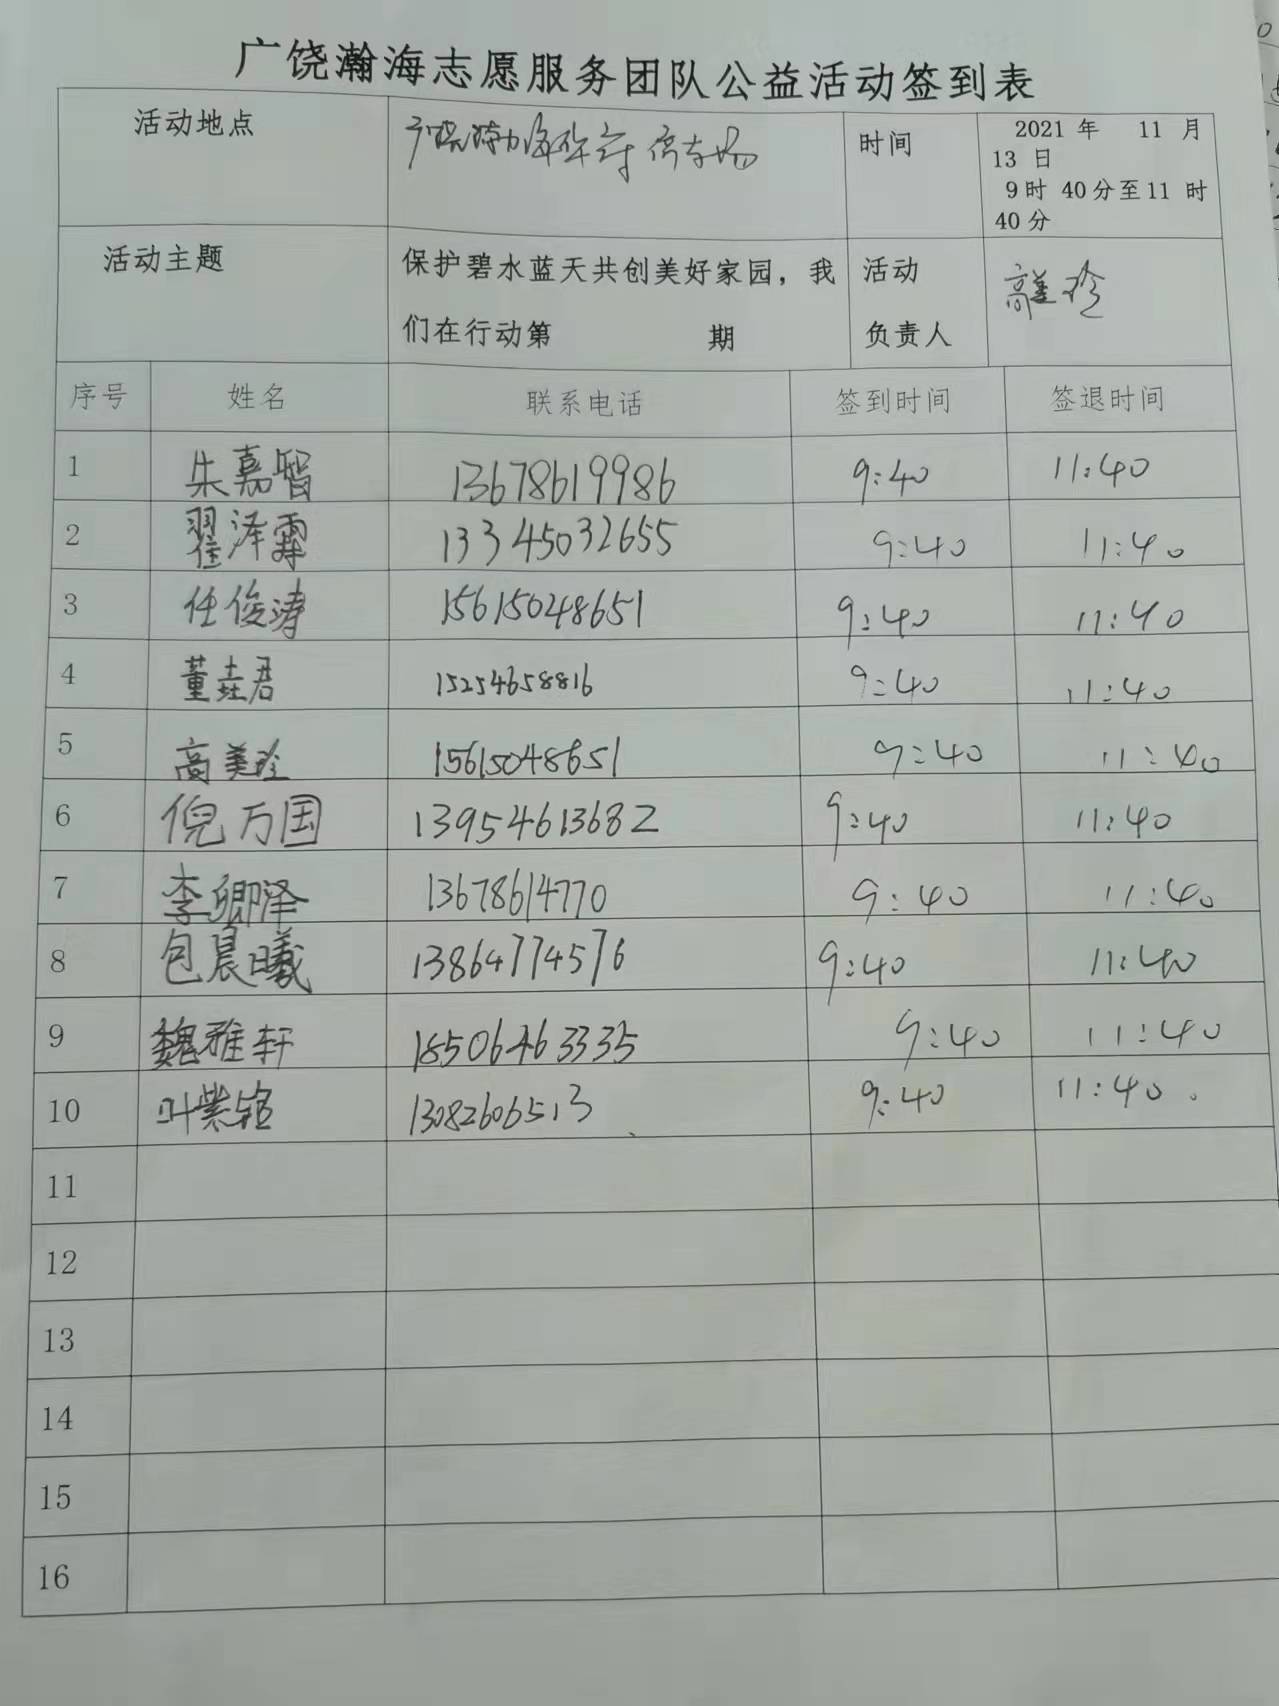 广饶瀚海志愿服务团队公益活动签到表
活动地点 时间 2021 年 11 月
13 日
9时 40分至11 时
40分
活动主题 保护碧水蓝天共创美好家园，我 活动 高美玲
们在行动第 期 负责人
序号 姓名 联系电话 签到时间 签退时间
1 朱嘉智 13678619986 9:40 11:40
2 翟泽霖 13345032655 9:40 11:40
3 任俊涛 15615048651 9:40 11:40
4 董垚君 15254658816 9:40 11:40
5 高美玲 15615048651 9:40 11:40
6 倪万国 13954613682 9:40 11:40
7 李卿泽 13678614770 9:40 11:40
8 包晨曦 13864774576 9:40 11:40
9 魏雅轩 18506463335 9:40 11:40
10 叶紫 13082606513 9:40 11:40
11
12
13
14
15
16